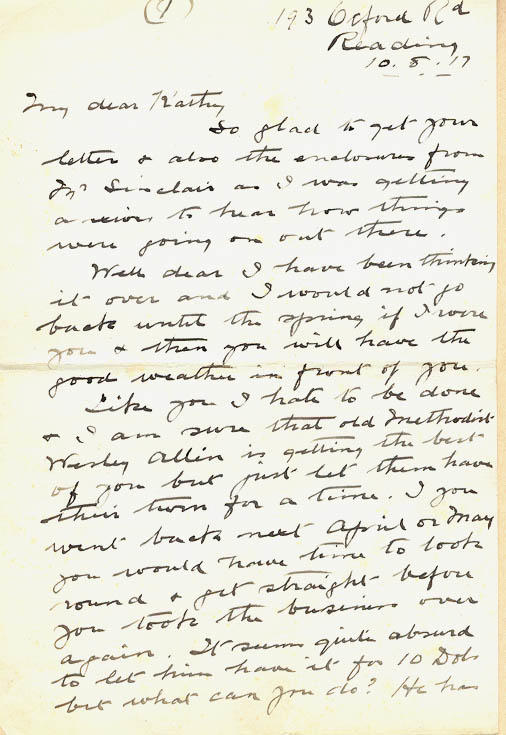 (1)
193 Oxford Rd
Reading
10.8.17
My dear Kathy
So glad to get your
letter & also the enclosures from
Mr Sinclair as I was getting
anxious to hear how things
were going on out there.
Well dear I have been thinking
it over and I would not go
back until the spring if I were
you & then you will have the
good weather in front of you.
Like you I hate to be done
& I am sure that old Methodist
Wesley Allin is getting the best
of you but just let them have
their turn for a time. I you
went back next April or May
you would have time to look
round & get straight before
you took the business over
again. It seems quite absurd
to let him have it for 10 Dols
but what can you do? He has